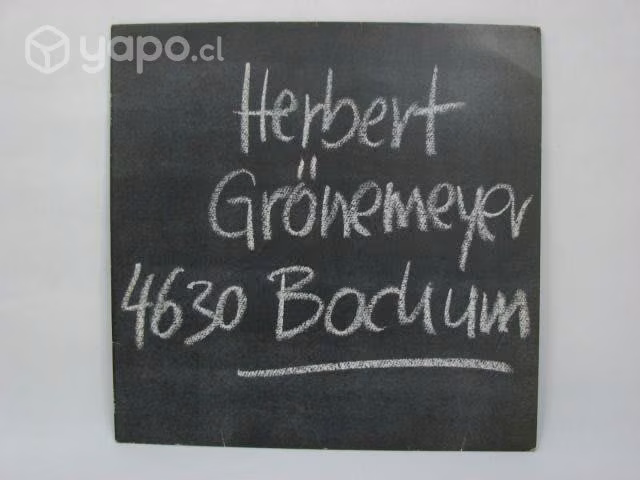 yapo.cl
Herbert
Grönemeyer
4630 Bochum